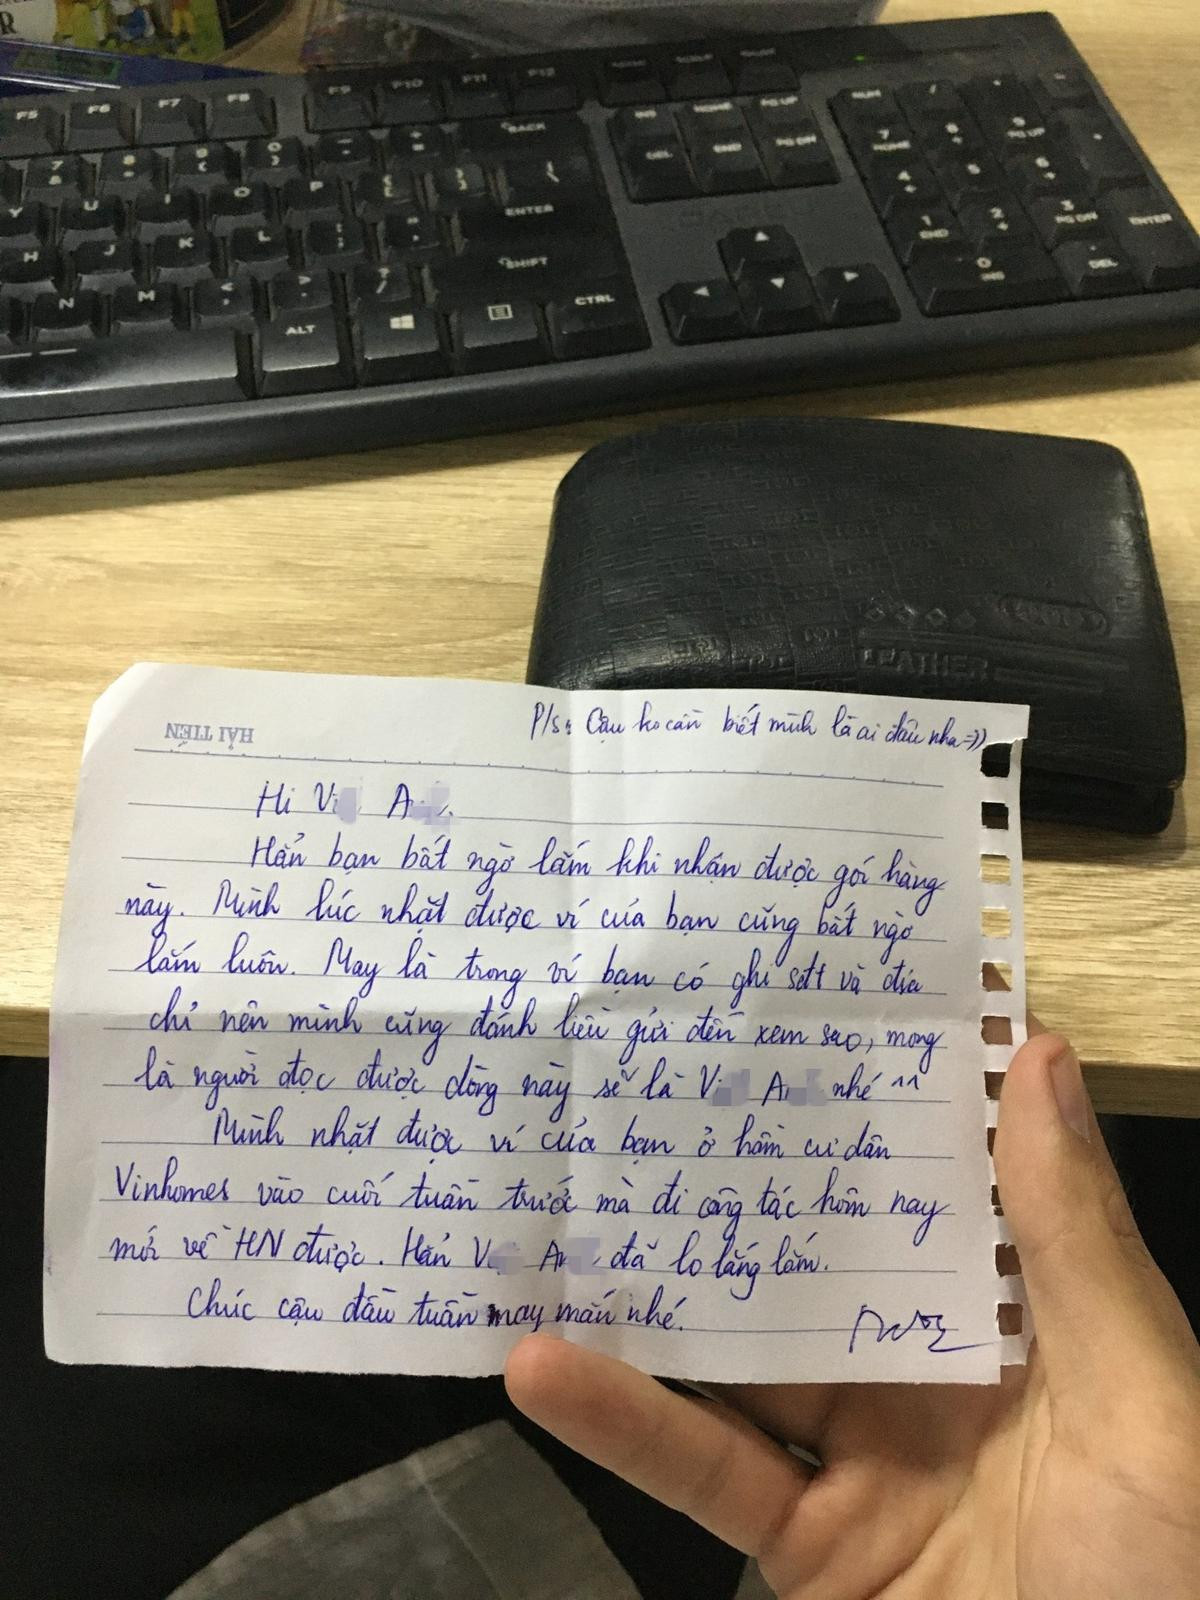 F5 F6 F7 F8 F9 F10 F11 F12
BACK
ENTER
SHIFT
ALT CTRL
INS HOME PG UP
DEL END PG DN
NUM / *
7 HOME 8 9 PG UP
4 5 6
1 END 2 3 PG DN ENTER
0 INS . DEL
Y U I O P
H J K L
N M
LEATHER
P/s: Cậu ko cần biết mình là ai đâu nha =))
HẢI TIẾN
Hi V A
Hẳn bạn bất ngờ lắm khi nhận được gói hàng
này. Mình lúc nhặt được ví của bạn cũng bất ngờ
lắm luôn. May là trong ví bạn có ghi sđt và địa
chỉ nên mình cũng đánh liều gửi đến xem sao, mong
là người đọc được dòng này sẽ là V A nhé ^^
Mình nhặt được ví của bạn ở hầm cư dân
Vinhomes vào cuối tuần trước mà đi công tác hôm nay
mới về HN được. Hẳn V A đã lo lắng lắm.
Chúc cậu đầu tuần may mắn nhé.